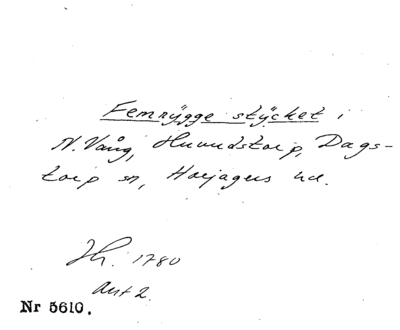 Femrygge stycket i
N. Vång, Huvudstorp, Dags-
torp sn, Harjagers hd.
Jh. 1780
Akt 2.
Nr 5610.